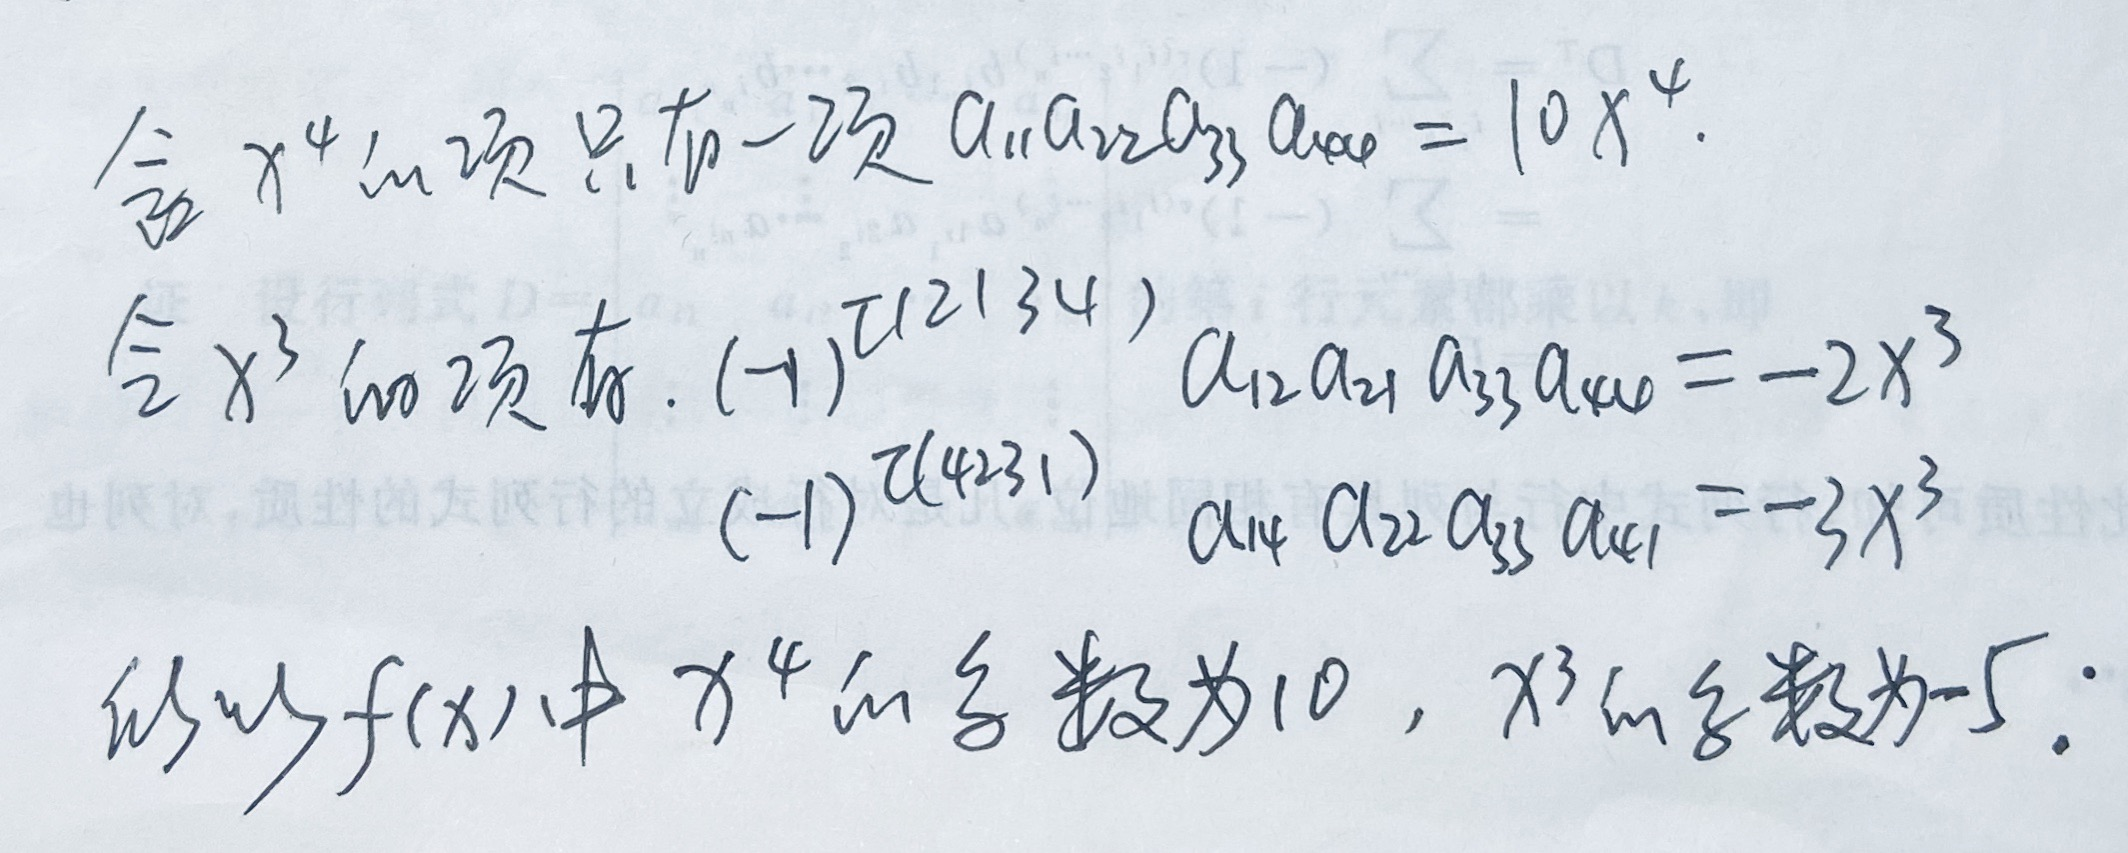 含 x⁴ 的项只有一项 a₁₁a₂₂a₃₃a₄₄ = 10x⁴.
含 x³ 的项有. (-1)^τ(2134) a₁₂a₂₁a₃₃a₄₄ = -2x³
(-1)^τ(4231) a₁₄a₂₂a₃₃a₄₁ = -3x³
所以 f(x) 中 x⁴ 的系数为10, x³ 的系数为-5.